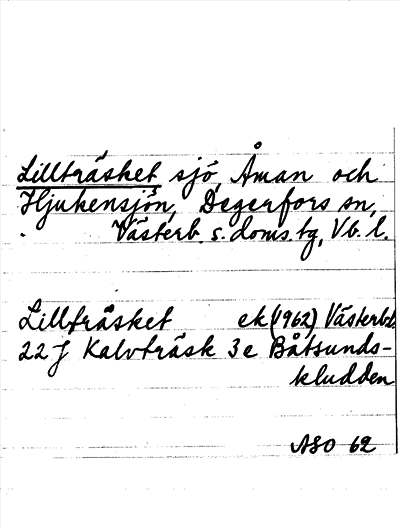 Lillträsket sjö, Åman och
Hjukensjön, Degerfors sn,
Västerb. s. doms. tg, Vb. l.
Lillträsket ek (1962) Västerb.l.
22 J Kalvträsk 3e Båtsunds-
kludden
ASO 62